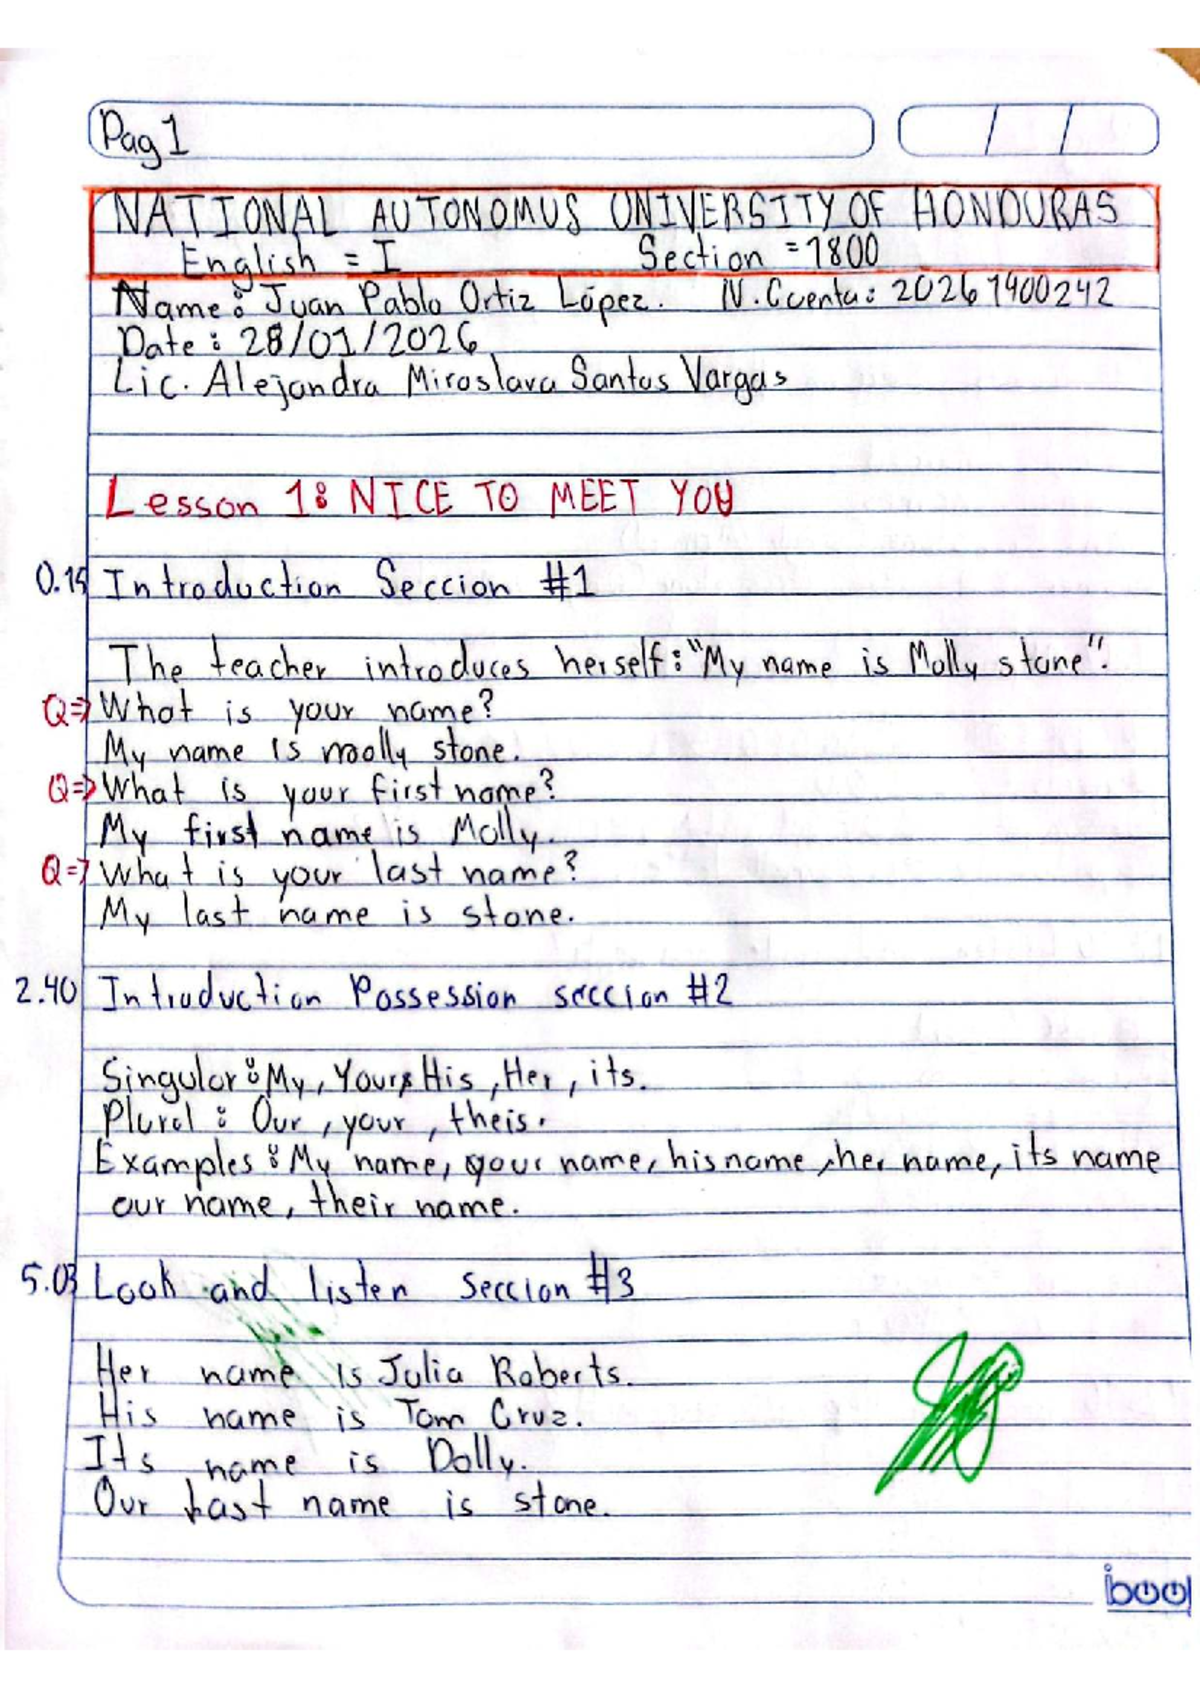 Pag 1
NATIONAL AUTONOMUS UNIVERSITY OF HONDURAS
English = I Section = 1800
Name: Juan Pablo Ortiz López. N. Cuenta: 20261400242
Date: 28/01/2026
Lic. Alejandra Miroslava Santos Vargas
Lesson 1: NICE TO MEET YOU
0.15 Introduction Seccion #1
The teacher introduces herself: "My name is Molly stone".
Q=> What is your name?
My name is molly stone.
Q=> What is your first name?
My first name is Molly.
Q=> What is your last name?
My last name is stone.
2.40 Introduction Possession seccion #2
Singular: My, Your, His, Her, its.
Plural: Our, your, theis.
Examples: My name, your name, his name, her name, its name
our name, their name.
5.03 Look and listen Seccion #3
Her name is Julia Roberts.
His name is Tom Cruz.
Its name is Dolly.
Our Last name is stone.